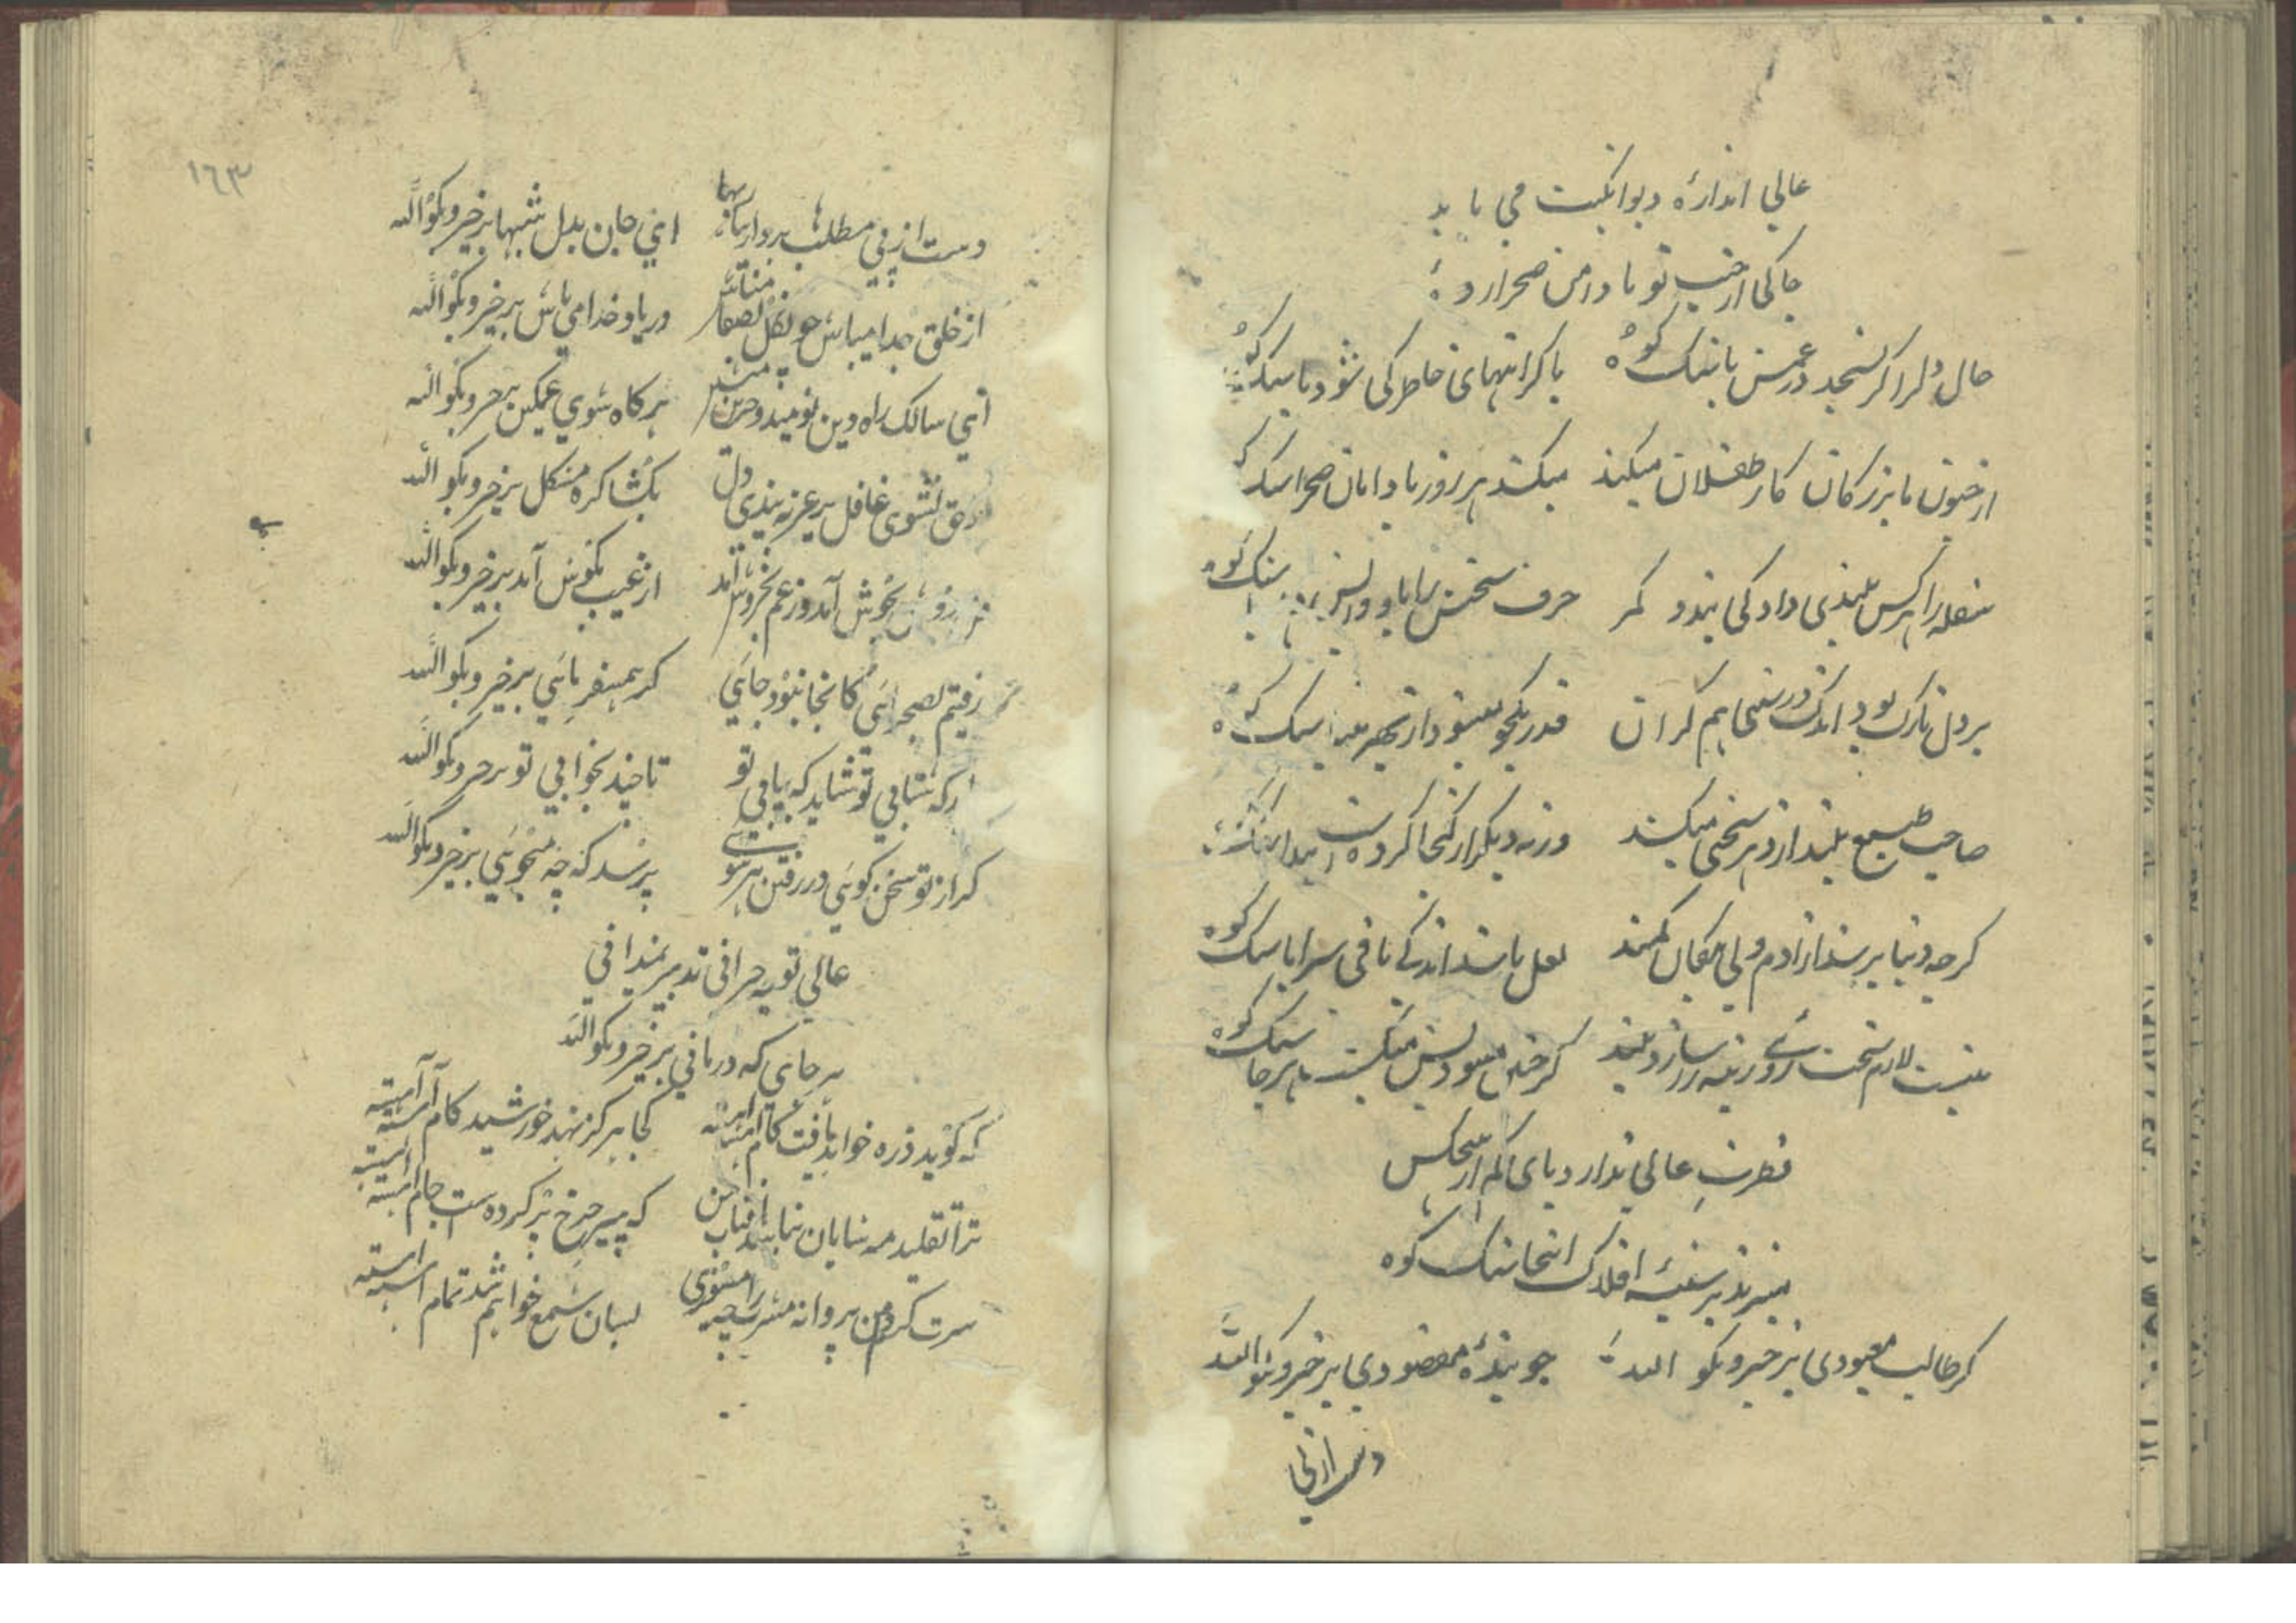 عالی اندازهٔ دیوانگیت می باید
چاکی از جیب تو تا دامن صحرا زده
حال دلرا گر نسنجد در غمش با سنک کوه با کرانیهای خاطر کی شود پا سنک کوه
از جنون با بزرکان کار طفلان میکند میکشد هر روز با دامان صحرا سنک کوه
سفله را هر کس بلندی داد کی بندد کمر حرف سختش را سنک کوه
بر دل نازک بود اندک درشتی هم کران قدر یکجو میشود از بهر مینا سنک کوه
صاحب طبع بلند از دهر سختی میکشد ورنه دیکر از کجا کردد پیدا سنک کوه
کرچه دنیا پر شد از آدم ولی یکسان کمند لعل باشد اندکی باقی سراپا سنک کوه
نیست لازم سخت رو زینه سازد بلند کر میشود میکشد هر جا سنک کوه
فطرت عالی ندارد پای کم از هیچکس
میزند بر سینهٔ افلاک اینجا سنک کوه
کر طالب معبودی برخیز و بکو الله جویندهٔ مقصودی برخیز و بکو الله
دست از پی
١٦٣
دست از پی مطلبها بردار بیاربها ای جان بدل شبها برخیز و بکو الله
از خلق جدا میباش چون کل بصفا میباش در یاد خدا می باش برخیز و بکو الله
ای سالک راه دین نومید و حزین منشین هر کاه شوی غمکین برخیز و بکو الله
از حق نشوی غافل بر غیر نبندی دل بکشا کره مشکل برخیز و بکو الله
بجوش آمد وز غم بخروش آمد از غیب بکوش آمد برخیز و بکو الله
رفتیم بصحرائی کانجا نبود جائی کر همسفر مائی برخیز و بکو الله
ار که شتابی تو شاید که بیابی تو تا چند بخوابی تو برخیز و بکو الله
کر از تو سخن کوئی در رفتن هر سوئی پرسد که چه میجوئی برخیز و بکو الله
عالی تو به حرافی تدبیر نمیدافی
هر جای که درمانی برخیز و بکو الله
که کوید ذره خواهد یافت کام آهسته آهسته کجا هرکز نهد خورشید کام آهسته آهسته
ترا تقلید مه شایان نباشد آفتاب من که پیر چرخ پر کرده است جام آهسته آهسته
سرت کردم من پروانه مشرب را مسوزی بسان شمع خواهم شد تمام آهسته آهسته